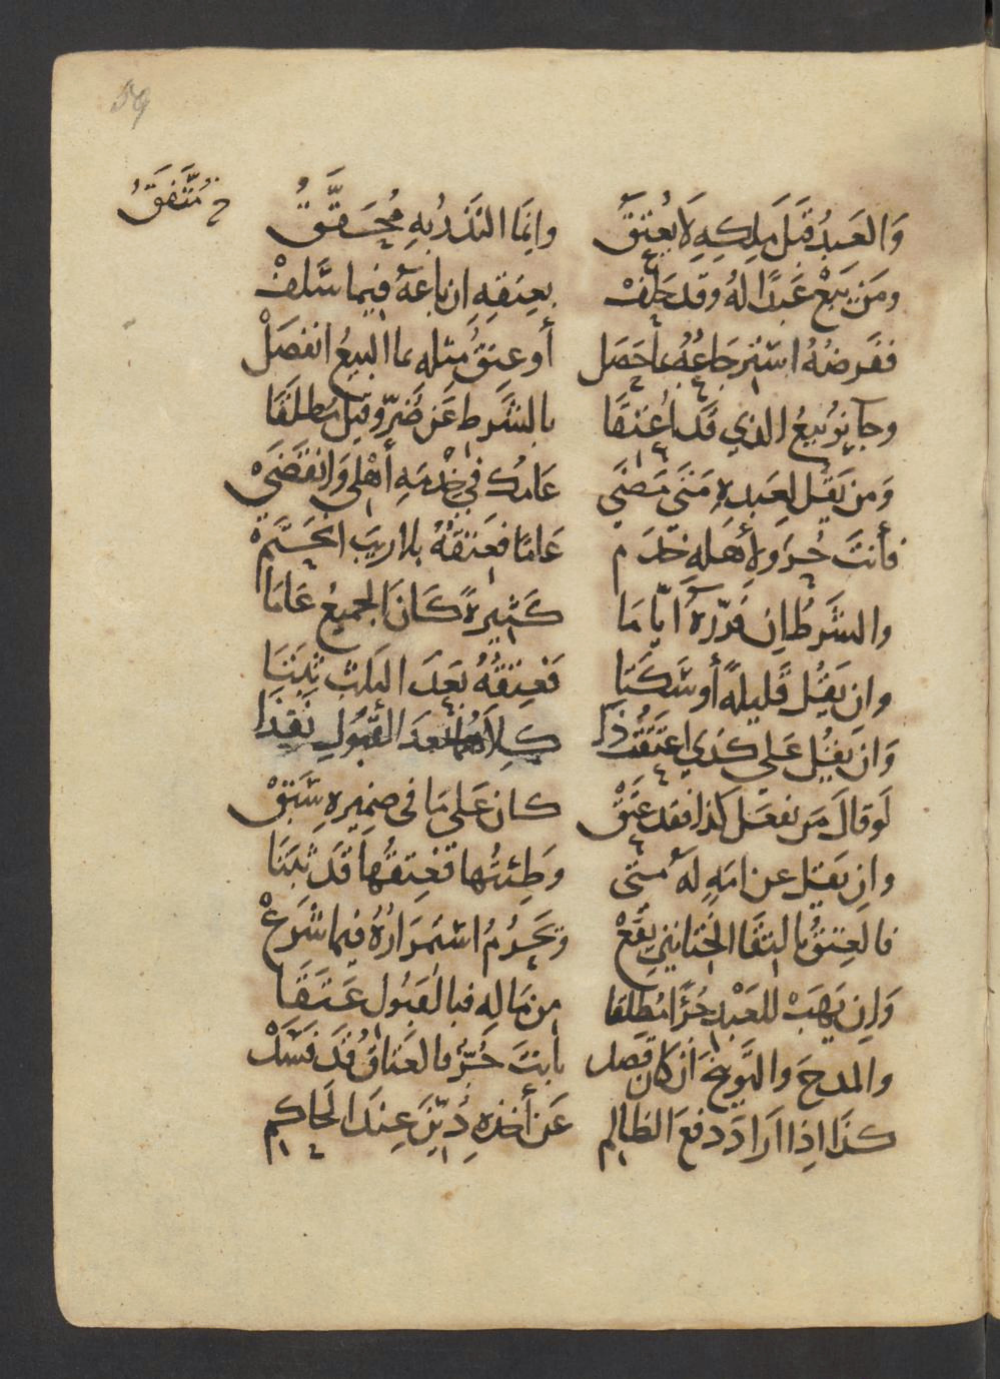 59
وَالعَبدُ قَبلَ مِلكِهِ لَا يُعتَقُ وانّما النَذرُ بهِ مُحَقَّقُ خ مُتَّفَقُ
ومَن يَبِعْ عَبدًا لهُ وقد حَلَفْ بعِتقِهِ ان باعَهُ فيما سَلَفْ
ففَرضُهُ استرجاعُهُ بما حَصَل أو عِتقُ مِثلهِ بما البيعُ انفصَلْ
وجايزٌ بيعُ الذي قد اعتقا بالشَرط عَن ضُرّ وقيل مطلقَا
وَمن يَقُل لعَبدهِ مَتَى مَضَى عَامُك في خِدمَةِ أهْلي وَانقَضَىْ
فأنتَ حُر وَلأهله خدَم عَامًا فعَتقهُ بلا ريبَ انحَتَم
والشَرطُ ان قَدّرهُ ايّامَا كَثيرةً كَانَ الجميعُ عَامَا
وان يَقُل قَليلةً أو سَكَتا فعِتقُهُ بَعدَ الثلث ثبتَا
وَان يَقُل عَلي كذي اعتَقتُ ذا كِلاهُما بعدَ القَبُولِ نَفذَا
لَو قالَ مَن فعَل كذا فقد عَتَقْ كان عَلى مَا في ضميرِهِ سَبَقْ
وان يَقل عن امَةٍ لهُ متى وَطِئتُها فعِتقُها قَد ثبتَا
فالعِتقُ بالتقَا الخَتانينِ يقَعْ وَيَحرُمُ استمرَارُهُ فيما شَرَعْ
وَان يَهَبْ للعَبْدِ حُرًّا مُطلقا من مَالِهِ فبالقَبُول عَتَقَا
والمدحَ والتَّوبيخَ ان كان قصَد بانتَ حُرٌّ فالعَتاقُ قَد فَسَدْ
كذَا اذا ارَادَ دفعَ الظالِم عَن أخذهِ دُيّنَ عِندَ الحَاكِم